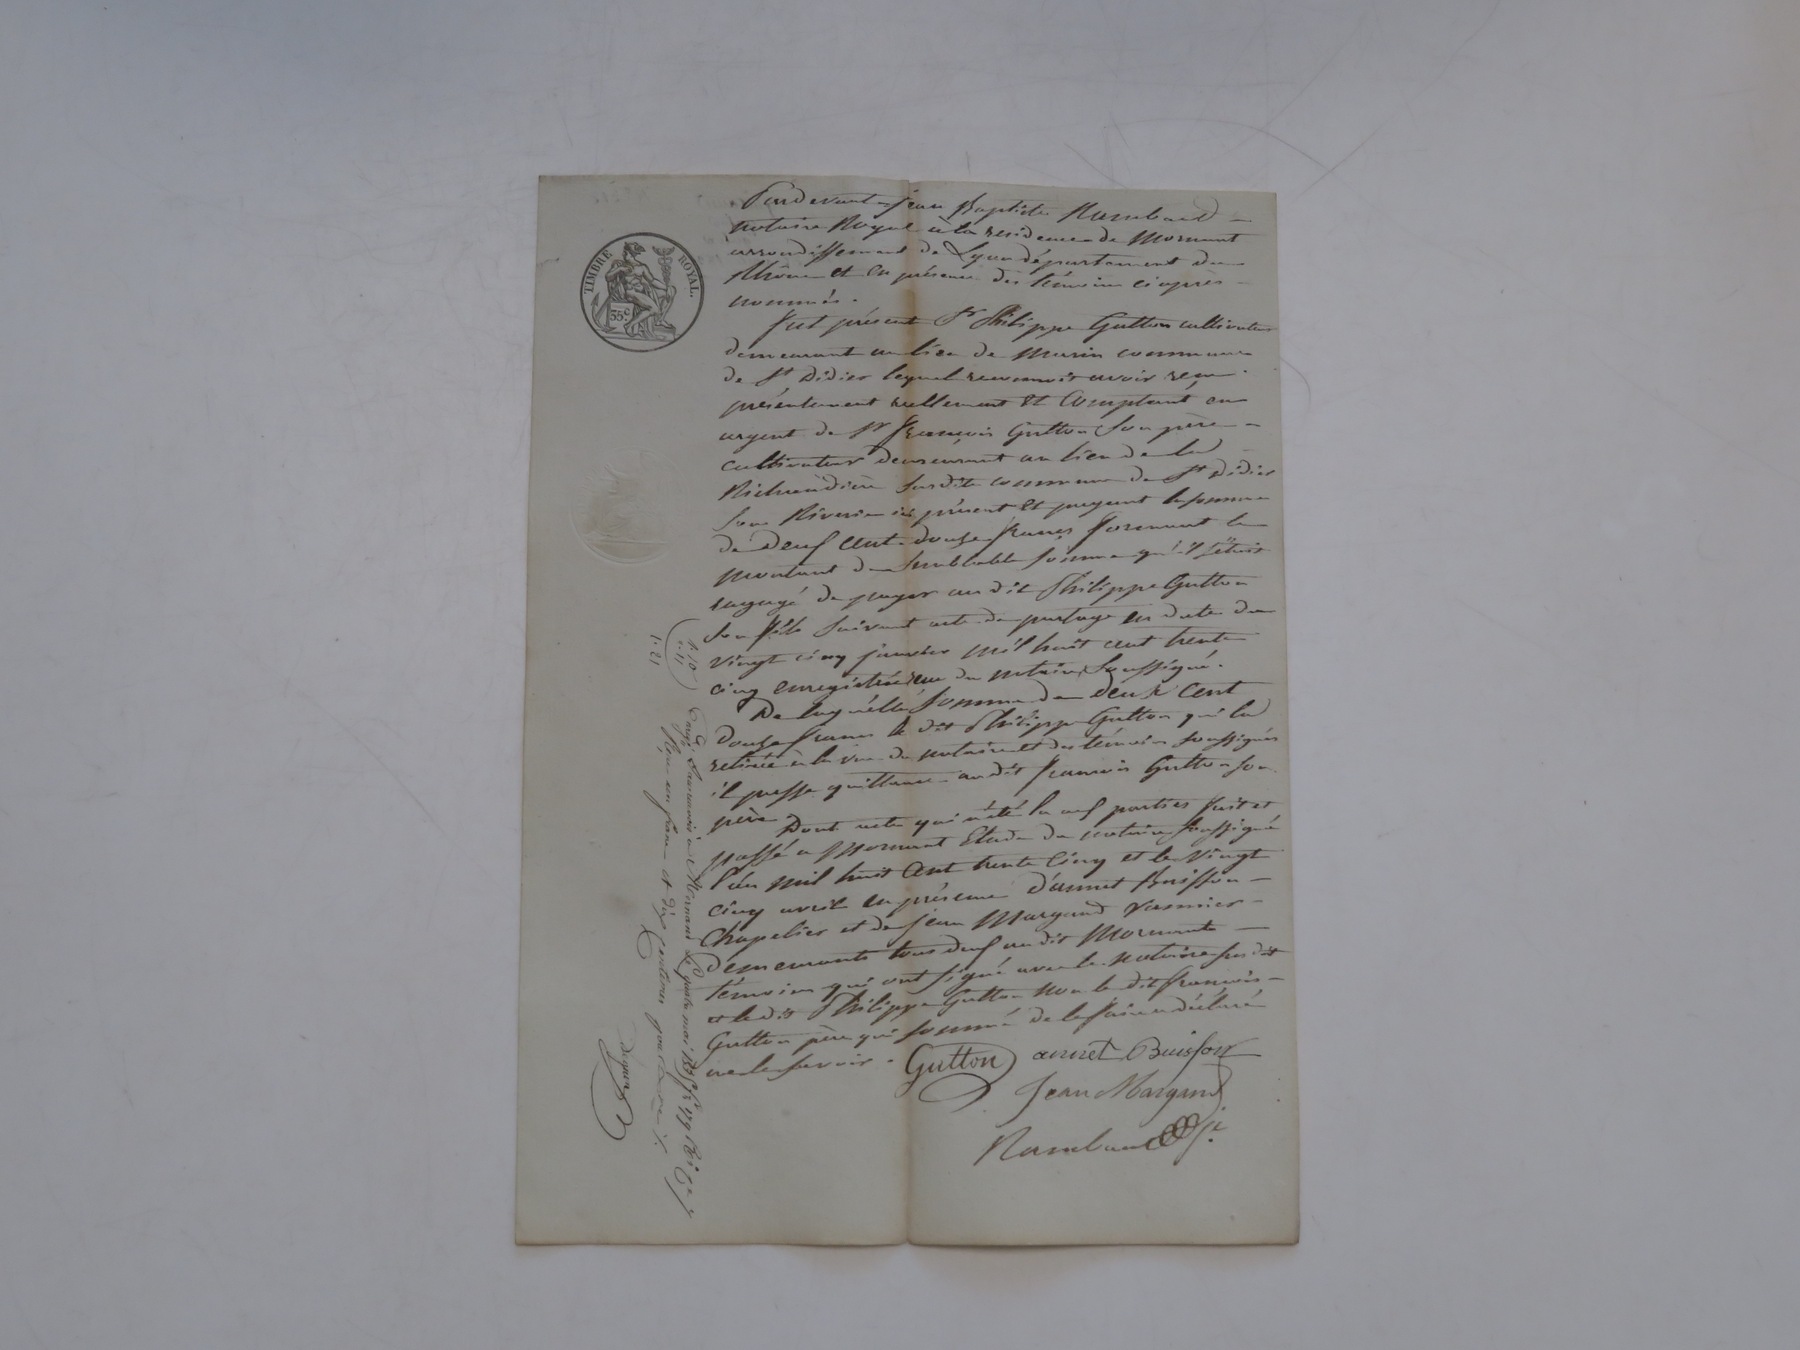 TIMBRE ROYAL.
35 c.
Pardevant Jean Baptiste Rambaud
notaire Royal à la residence de Mornant
arrondissement de Lyon département du
Rhône et en présence des témoins ci après
nommés.
Fut présent Sr Philippe Gutton cultivateur
demeurant au lieu de Morin commune
de St Didier lequel reconnoit avoir reçu
présentement reellement et comptant en
argent de Sr François Gutton son père
cultivateur demeurant au lieu de la
susdite commune de St Didier
sous Riverie ici présent et payant la somme
de deux cent douze francs formant le
montant de semblable somme qu'il s'étoit
engagé de payer au dit Philippe Gutton
son fils suivant acte de partage en date du
vingt cinq janvier mil huit cent trente
cinq enregistré reçu du notaire soussigné.
De laquelle somme de deux cent
douze francs le dit Philippe Gutton qui la
retirée à la vue du notaire et des témoins soussignés
il passe quittance au dit François Gutton son
père
Dont acte qui a été lu aux parties fait et
passé a Mornant Etude du notaire soussigné
l'an mil huit cent trente cinq et le vingt
cinq avril en présence d'annet Buisson
chapelier et de Jean Margand
demeurants tous deux au dit Mornant
témoins qui ont signé avec le notaire susdit
et le dit Philippe Gutton non le dit François
Gutton père qui sommé de le faire a déclaré
ne le savoir.
Gutton annet Buisson
Jean Margand
Rambaud
1.10
.11
1.21
à Mornant le quatre mai
Reçu un franc et dix centimes